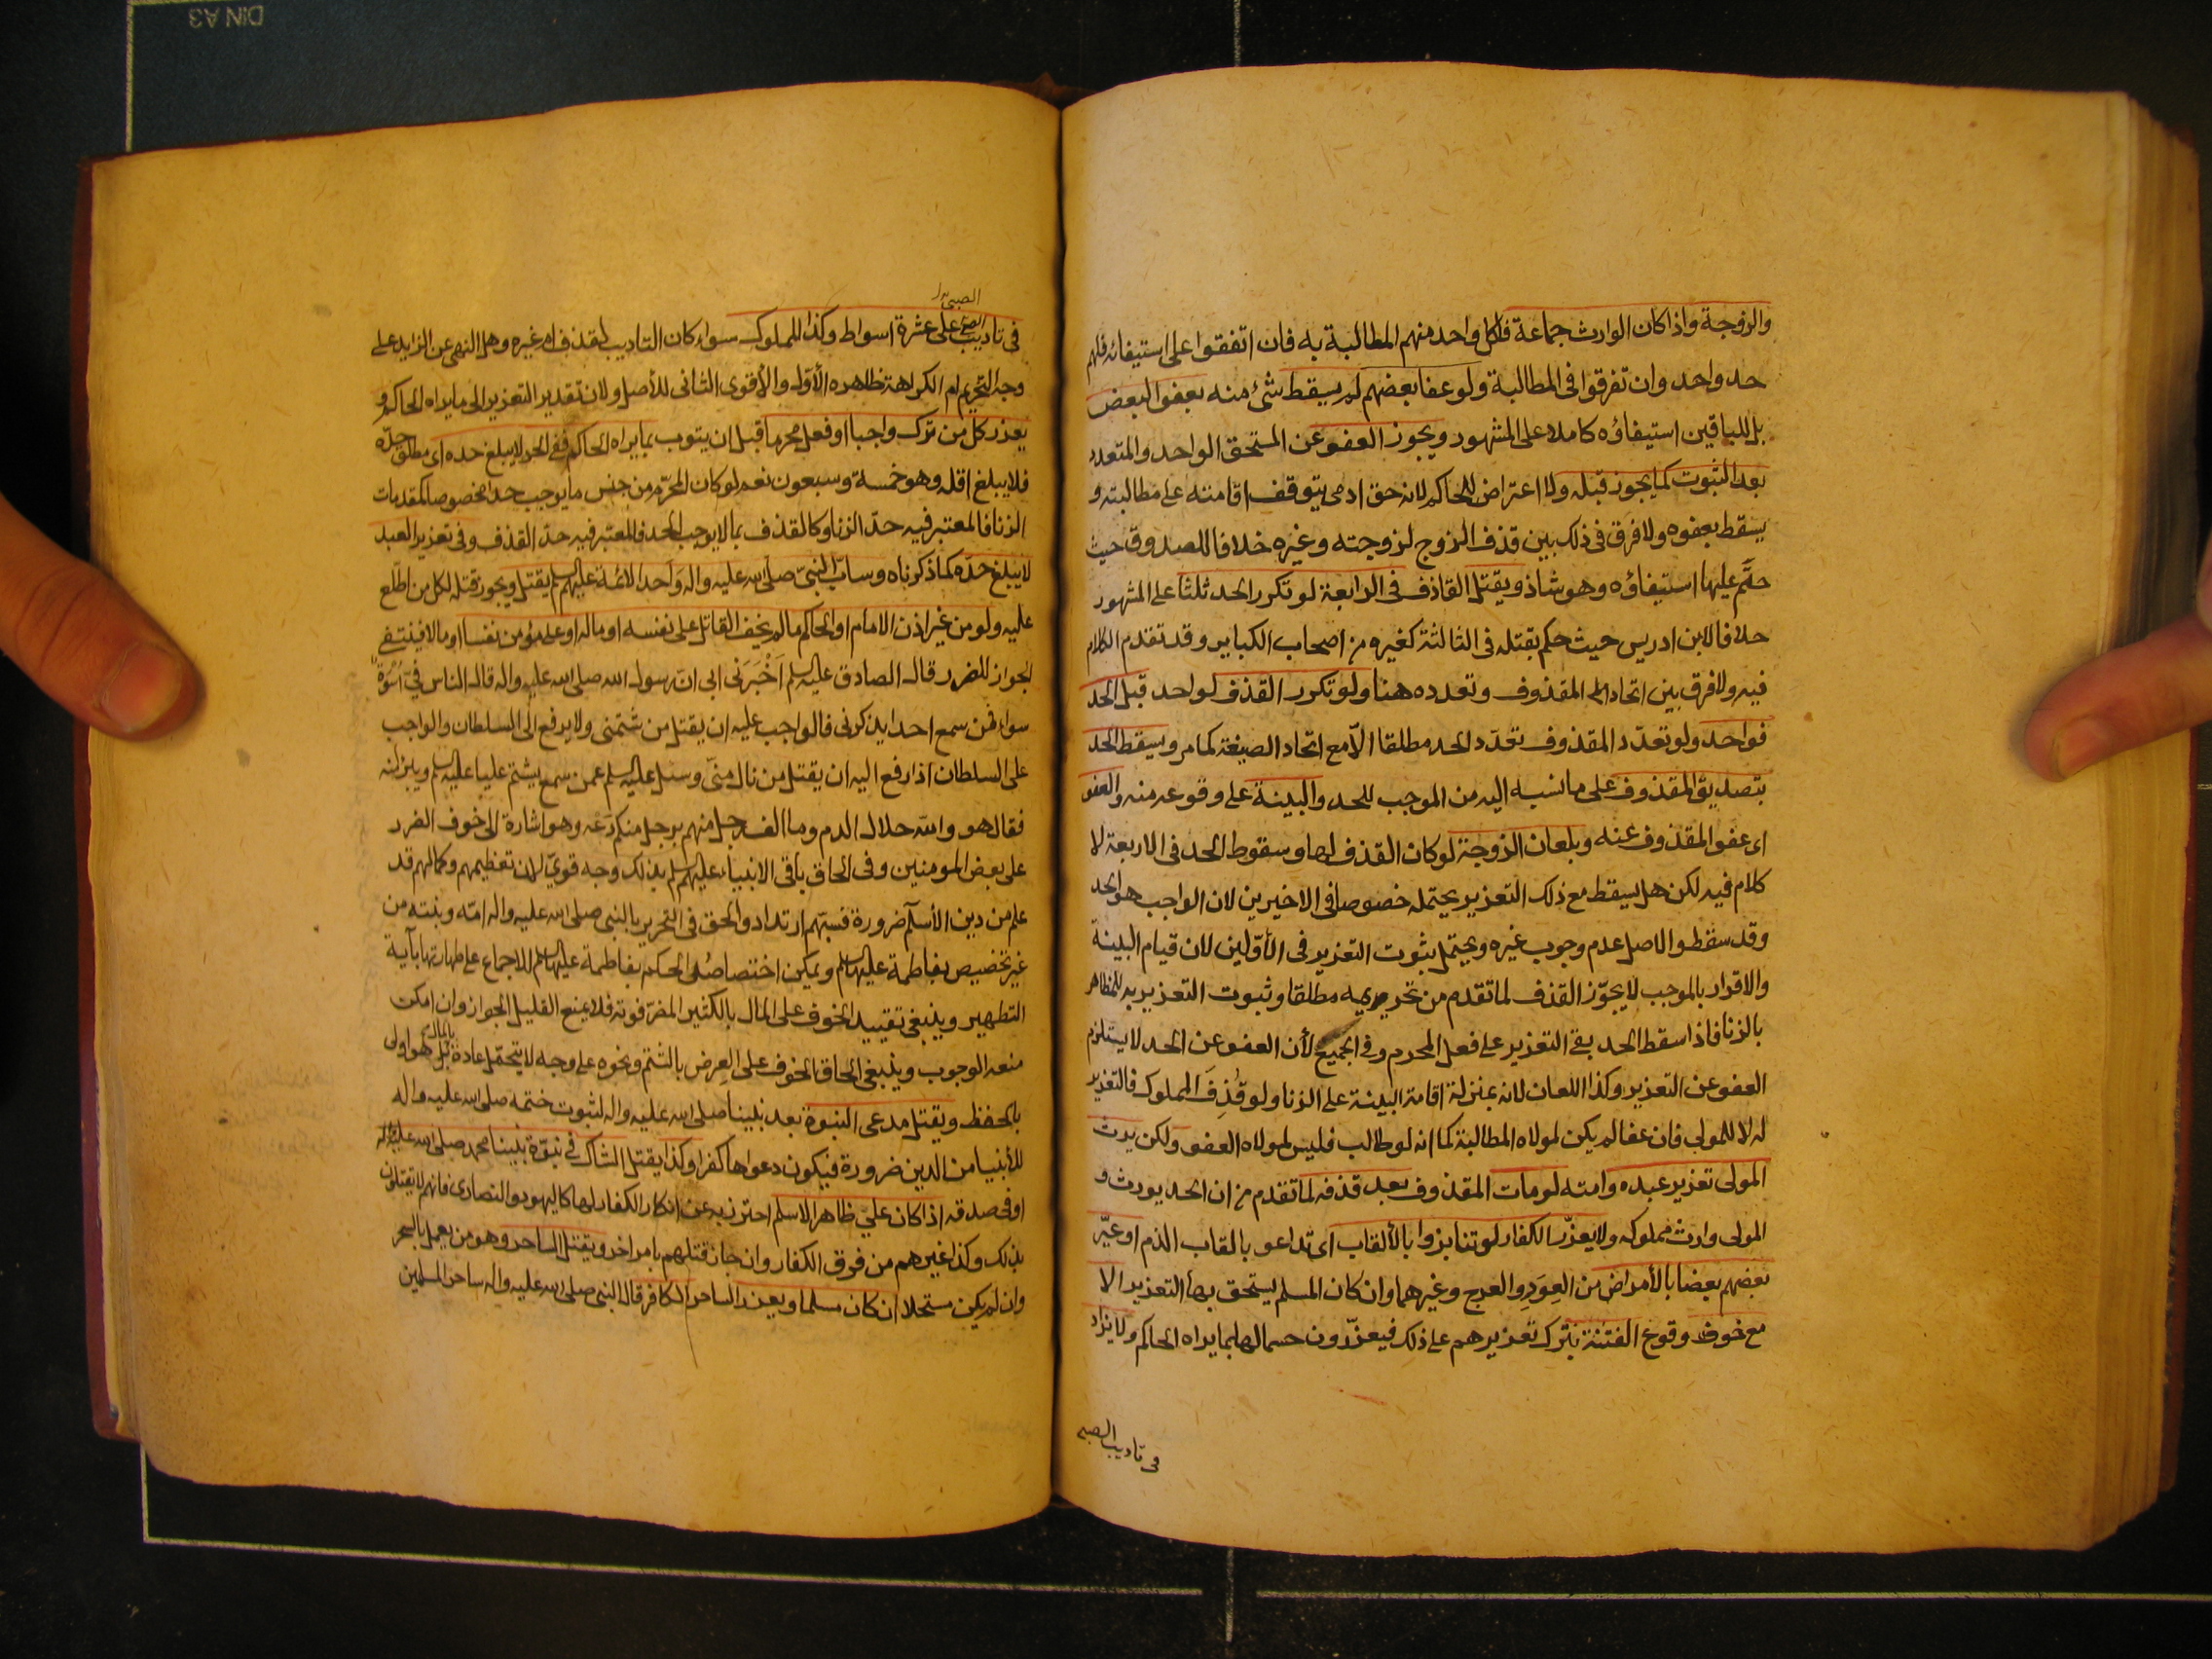 والزوجة واذا كان الوارث جماعة فلكل واحد منهم المطالبة به فان اتفقوا على استيفائه فلهم
حد واحد وان تفرقوا في المطالبة ولو عفا بعضهم لم يسقط شئ منه بعفو البعض
بل للباقين استيفاؤه كاملا على المشهور ويجوز العفو عن المستحق الواحد والمتعدد
بعد الثبوت كما يجوز قبله ولا اعتراض للحاكم لانه حق ادمى يتوقف اقامته على مطالبته و
يسقط بعفوه ولا فرق في ذلك بين قذف الزوج لزوجته وغيره خلافا للصدوق حيث
حتّم عليها استيفاؤه وهو شاذ ويقتل القاذف في الرابعة لو تكرر الحد ثلثا على المشهور
خلافا لابن ادريس حيث حكم بقتله في الثالثة كغيره من اصحاب الكباير وقد تقدم الكلام
فيه ولا فرق بين اتحاد المقذوف وتعدده هنا ولو تكرر القذف لواحد قبل الحد
فواحد ولو تعدّد المقذوف تعدّد الحد مطلقا الّا مع اتحاد الصيغة كما مر ويسقط الحد
بتصديق المقذوف على ما نسبه اليه من الموجب للحد والبينة على وقوعه منه والعفو
اى عفو المقذوف عنه وبلعان الزوجة لو كان القذف لها وسقوط الحد في الاربعة لا
كلام فيه لكن هل يسقط مع ذلك التعزير يحتمله خصوصا في الاخيرين لان الواجب هو الحد
وقد سقط والاصل عدم وجوب غيره ويحتمل ثبوت التعزير في الأوّلين لان قيام البينة
والاقرار بالموجب لا يجوّز القذف لما تقدم من تحريمه مطلقا وثبوت التعزير به للمظاهر
بالزنا فاذا سقط الحد بقى التعزير على فعل المحرم وفي الجميع لأن العفو عن الحد لا يستلزم
العفو عن التعزير وكذا اللعان لانه بمنزلة اقامة البينة على الزنا ولو قُذِفَ المملوك فالتعزير
له لا للمولى فان عفا لم يكن لمولاه المطالبة كما انه لو طالب فليس لمولاه العفو ولكن يرث
المولى تعزير عبده وامته لو مات المقذوف بعد قذفه لما تقدم من ان الحد يورث و
المولى وارث مملوكه ولا يعزّر الكفار لو تنابزوا بالألقاب اى تداعو بالقاب الذم او عيّر
بعضهم بعضا بالأمراض من العِوَر والعرج وغيرهما وان كان المسلم يستحق بها التعزير الا
مع خوف وقوع الفتنة بترك تعزيرهم على ذلك فيعزّرون حسما لها بما يراه الحاكم ولا يزاد
في تاديب الصبى
الصبى
في تاديب الصبى على عشرة اسواط وكذا المملوك سواء كان التاديب لقذف ام غيره وهل النهى عن الزايد على
وجه التحريم ام الكراهة ظاهره الأوّل والأقوى الثانى للأصل ولان تقدير التعزير الى ما يراه الحاكم و
يعزر كل من ترك واجبا او فعل محرما قبل ان يتوب بما يراه الحاكم ففي الحر لا يبلغ حده اى مطلق حدّه
فلا يبلغ اقله وهو خمسة وسبعون نعم لو كان المحرّم من جنس ما يوجب حدا مخصوصا كمقدمات
الزنا فالمعتبر فيه حدّ الزنا وكالقذف بما لا يوجب الحد فالمعتبر فيه حدّ القذف وفي تعزير العبد
لا يبلغ حدّه كما ذكرناه وسابّ النبيّ صلى الله عليه واله وَاحد الائمة عليهم السلم يقتل ويجوز قتله لكل من اطّلع
عليه ولو من غير اذن الامام او الحاكم ما لم يخف القاتل على نفسه او ماله او على مؤمن نفسا او مالا فينتفي
الجواز للضرر قال الصادق عليه السلم أَخْبَرَنى ابي انّ رسول الله صلى الله عليه واله قال الناس فيّ اُسْوَة
سواء فمن سمع احدا يذكرنى فالواجب عليه ان يقتل من شتمنى ولا يرفع الى السلطان والواجب
على السلطان اذا رفع اليه ان يقتل من نال منّى وسئل عليه السلم عمن سمع يشتم عليا عليه السلم ويبرأ منه
فقال هو والله حلال الدم وما الف رجل منهم برجل منكم دَعْه وهو اشارة الى خوف الضرر
على بعض المومنين وفي الحاق باقي الانبياء عليهم السلم بذلك وجه قوىّ لان تعظيمهم وكمالهم قد
علم من دين الأسلام ضرورة فسبّهم ارتداد والحق في التحرير بالنبى صلى الله عليه واله امّه وبنته من
غير تخصيص بفاطمة عليها السلم ويمكن اختصاص الحكم بفاطمة عليها السلم للاجماع على طهارتها بآية
التطهير وينبغى تقييد الخوف على المال بالكثير المضرّ فوته فلا يمنع القليل الجواز وان امكن
منعه الوجوب وينبغى الحاق الخوف على العِرض بالشتم ونحوه على وجه لا يتحمّل عادة بالمال بل هو اولى
بالحفظ ويقتل مدعى النبوة بعد نبينا صلى الله عليه واله لثبوت ختمه صلى الله عليه واله
للأنبيا من الدين ضرورة فيكون دعواها كفرا وكذا يقتل الشاك في نبوّة نبينا محمد صلى الله عليه واله
او في صدقه اذا كان على ظاهر الاسلم احترز به عن انكار الكفار لها كاليهود والنصارى فانهم لا يقتلون
بذلك وكذا غيرهم من فرق الكفار وان جاز قتلهم بامر اخر ويقتل الساحر وهو من يعمل بالسحر
وان لم يكن مستحلا ان كان مسلما ويعزر الساحر الكافر قال النبى صلى الله عليه واله ساحر المسلمين